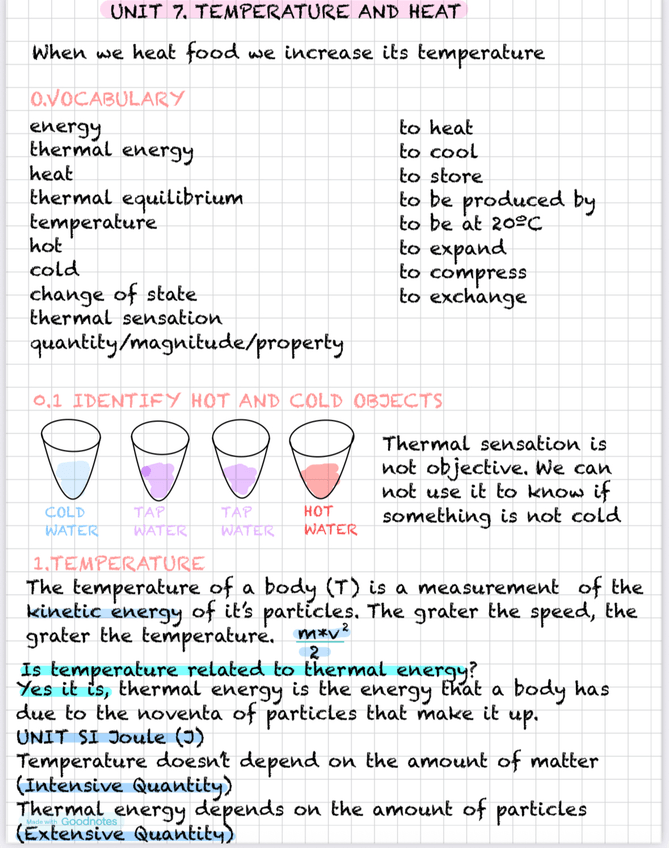 UNIT 7. TEMPERATURE AND HEAT
When we heat food we increase its temperature
0.VOCABULARY
energy
thermal energy
heat
thermal equilibrium
temperature
hot
cold
change of state
thermal sensation
quantity/magnitude/property
to heat
to cool
to store
to be produced by
to be at 20ºC
to expand
to compress
to exchange
0.1 IDENTIFY HOT AND COLD OBJECTS
COLD
WATER
TAP
WATER
TAP
WATER
HOT
WATER
Thermal sensation is
not objective. We can
not use it to know if
something is not cold
1.TEMPERATURE
The temperature of a body (T) is a measurement of the
kinetic energy of it's particles. The grater the speed, the
grater the temperature.
m*v²
2
Is temperature related to thermal energy?
Yes it is, thermal energy is the energy that a body has
due to the noventa of particles that make it up.
UNIT SI Joule (J)
Temperature doesn't depend on the amount of matter
(Intensive Quantity)
Thermal energy depends on the amount of particles
(Extensive Quantity)
Made with Goodnotes